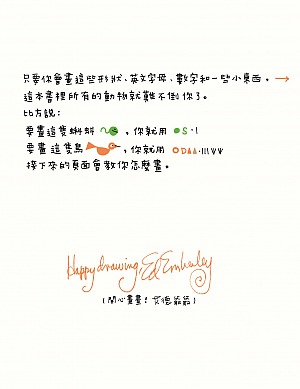 只要你會畫這些形狀、英文字母、數字和一些小東西，→
這本書裡所有的動物就難不倒你了。
比方說：
要畫這隻蝌蚪 ，你就用 ● S · l
要畫這隻鳥 ，你就用 ○ D △ △ · l l l Ψ Ψ
接下來的頁面會教你怎麼畫。
Happy drawing, Ed Emberley
（開心畫畫！艾德